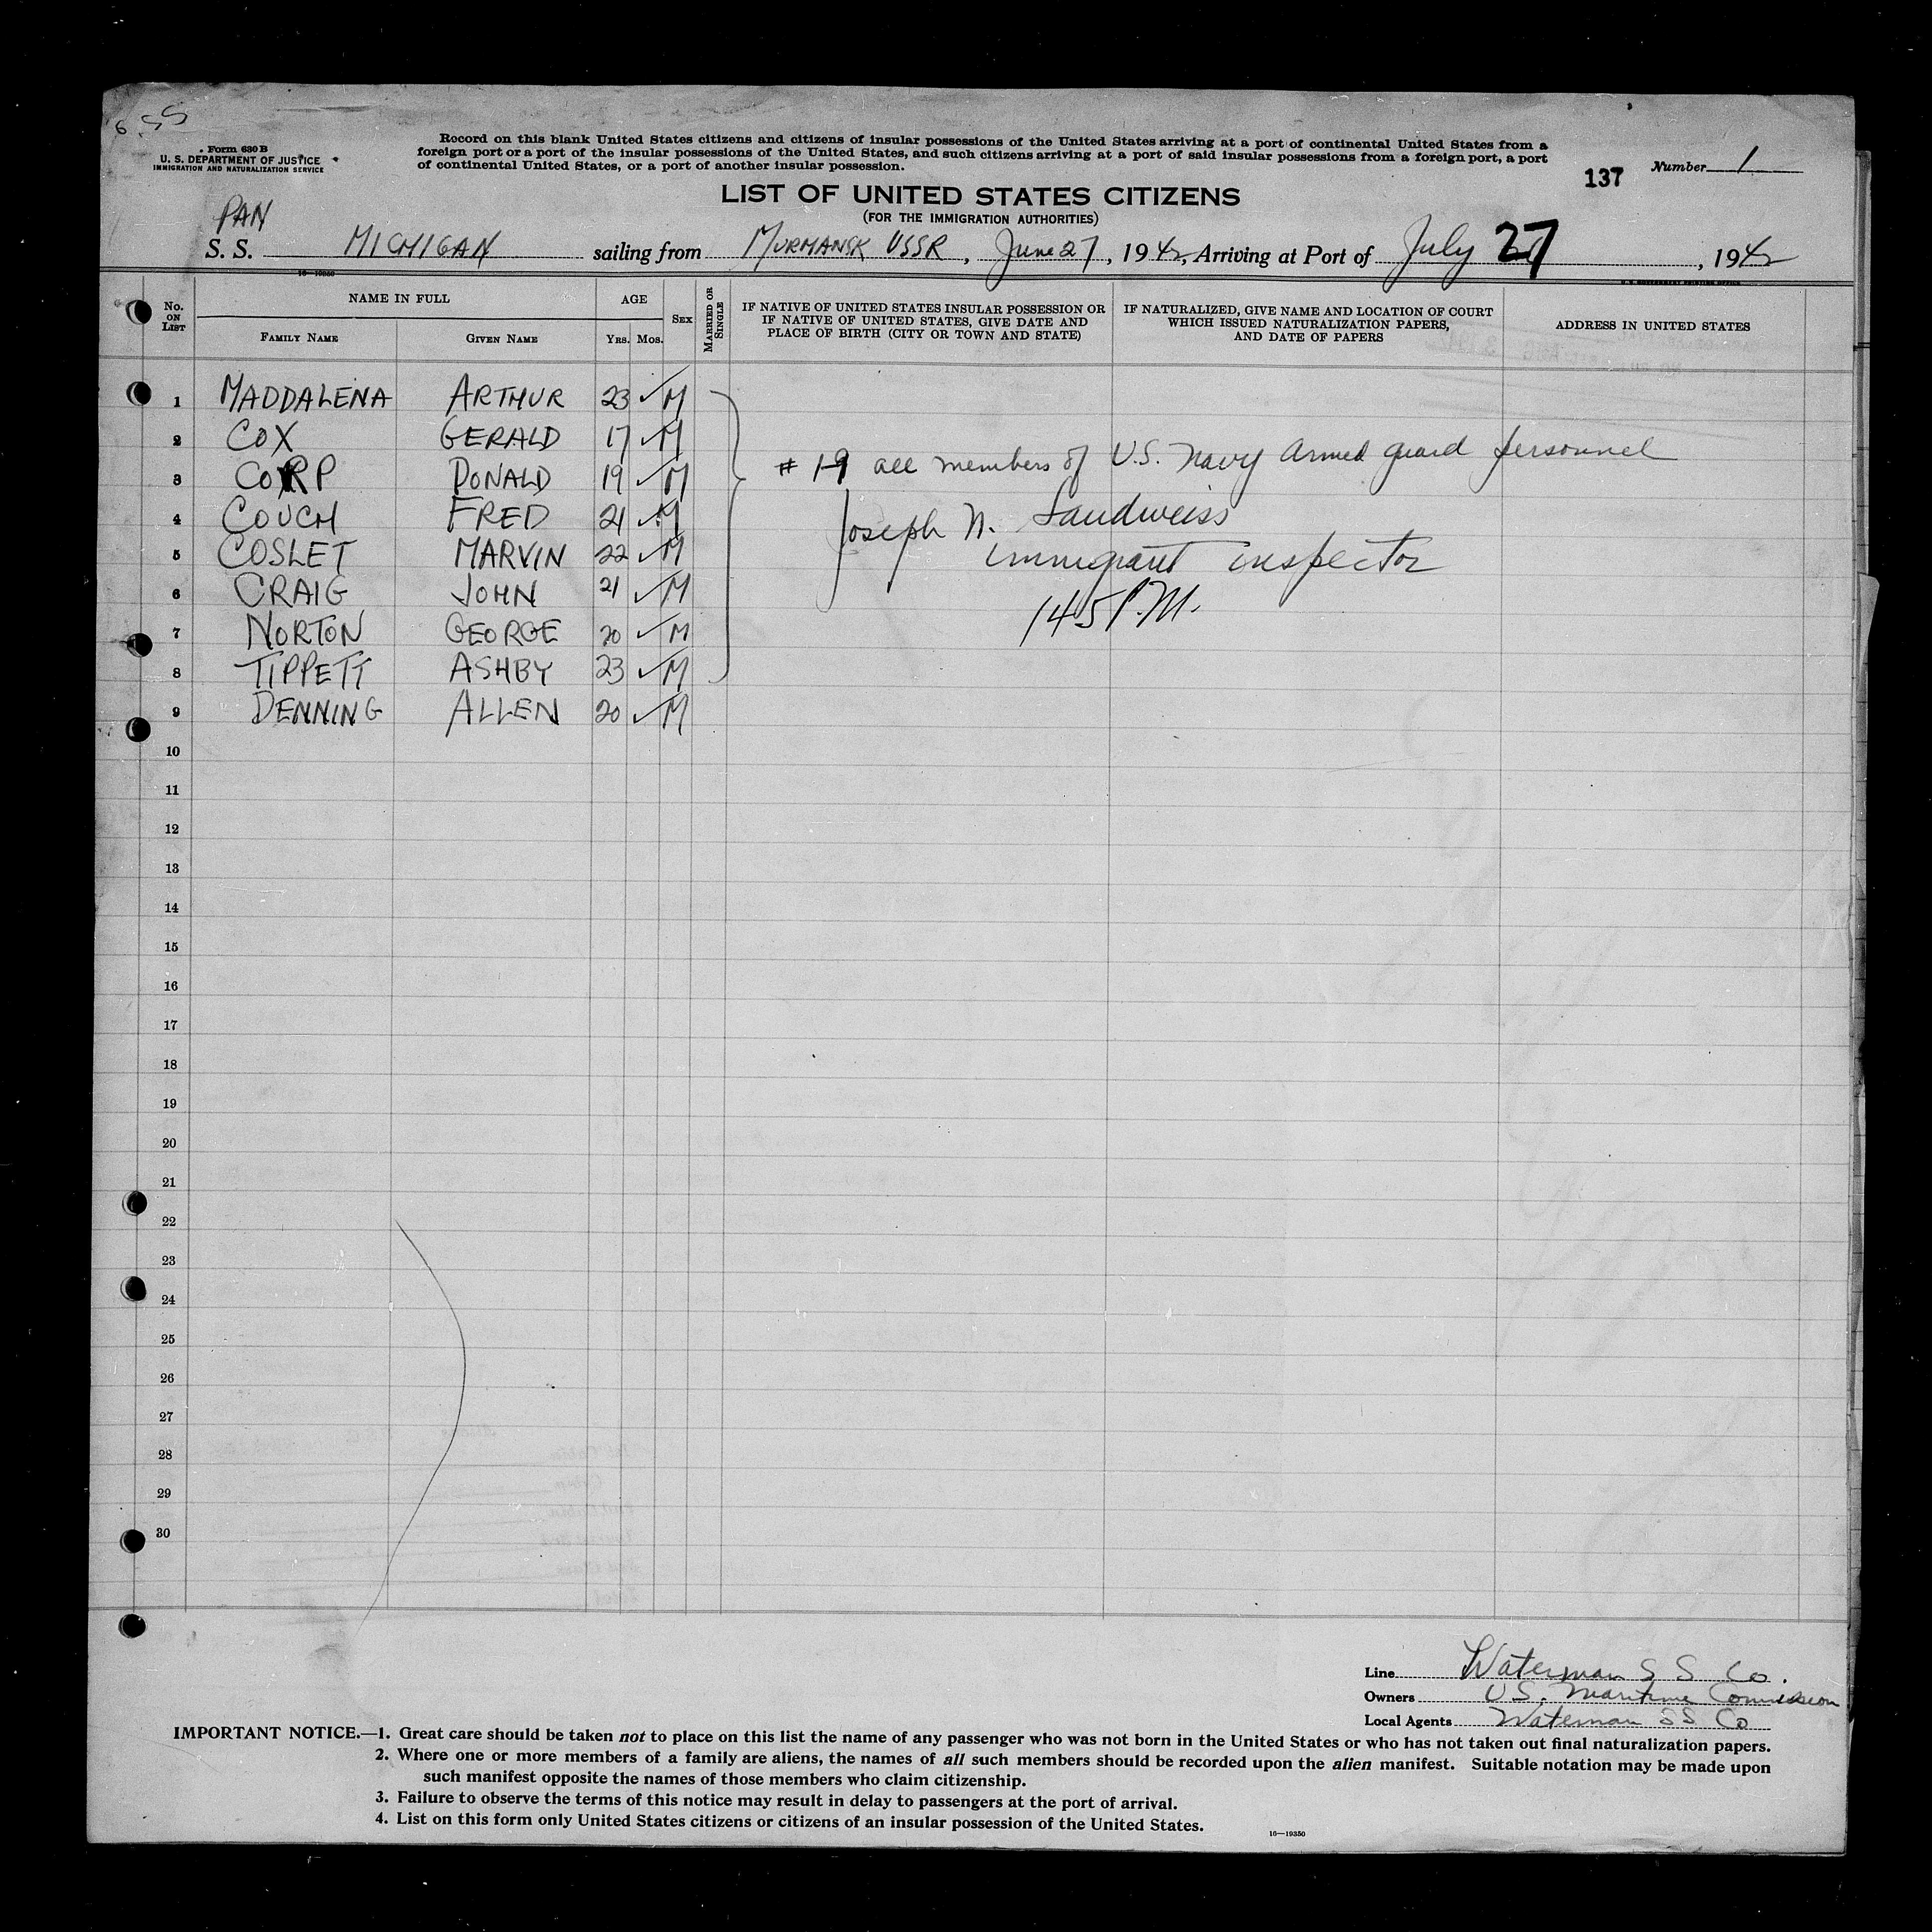 Form 630 B
U. S. DEPARTMENT OF JUSTICE
IMMIGRATION AND NATURALIZATION SERVICE
Record on this blank United States citizens and citizens of insular possessions of the United States arriving at a port of continental United States from a
foreign port or a port of the insular possessions of the United States, and such citizens arriving at a port of said insular possessions from a foreign port, a port
of continental United States, or a port of another insular possession.
137 Number 1
LIST OF UNITED STATES CITIZENS
(FOR THE IMMIGRATION AUTHORITIES)
PAN
S. S. MICHIGAN sailing from MURMANSK USSR, June 27, 1942, Arriving at Port of July 27, 1942
16—19350
No. ON LIST NAME IN FULL AGE SEX MARRIED OR SINGLE IF NATIVE OF UNITED STATES INSULAR POSSESSION OR IF NATIVE OF UNITED STATES, GIVE DATE AND PLACE OF BIRTH (CITY OR TOWN AND STATE) IF NATURALIZED, GIVE NAME AND LOCATION OF COURT WHICH ISSUED NATURALIZATION PAPERS, AND DATE OF PAPERS ADDRESS IN UNITED STATES
FAMILY NAME GIVEN NAME YRS. MOS.
1 MADDALENA ARTHUR 23 ✓ M
2 COX GERALD 17 ✓ M
3 CORP DONALD 19 ✓ M
4 COUCH FRED 21 ✓ M
5 COSLET MARVIN 22 ✓ M
6 CRAIG JOHN 21 ✓ M
7 NORTON GEORGE 20 ✓ M
8 TIPPETT ASHBY 23 ✓ M
9 DENNING ALLEN 20 ✓ M
# 1-9 all members of U.S. Navy Armed guard personnel
Joseph N. Sandweiss
immigrant inspector
145 P.M.
10
11
12
13
14
15
16
17
18
19
20
21
22
23
24
25
26
27
28
29
30
Line Waterman S S Co.
Owners U.S. Maritime Commission
Local Agents Waterman SS Co
IMPORTANT NOTICE.—1. Great care should be taken not to place on this list the name of any passenger who was not born in the United States or who has not taken out final naturalization papers.
2. Where one or more members of a family are aliens, the names of all such members should be recorded upon the alien manifest. Suitable notation may be made upon
such manifest opposite the names of those members who claim citizenship.
3. Failure to observe the terms of this notice may result in delay to passengers at the port of arrival.
4. List on this form only United States citizens or citizens of an insular possession of the United States.
16—19350